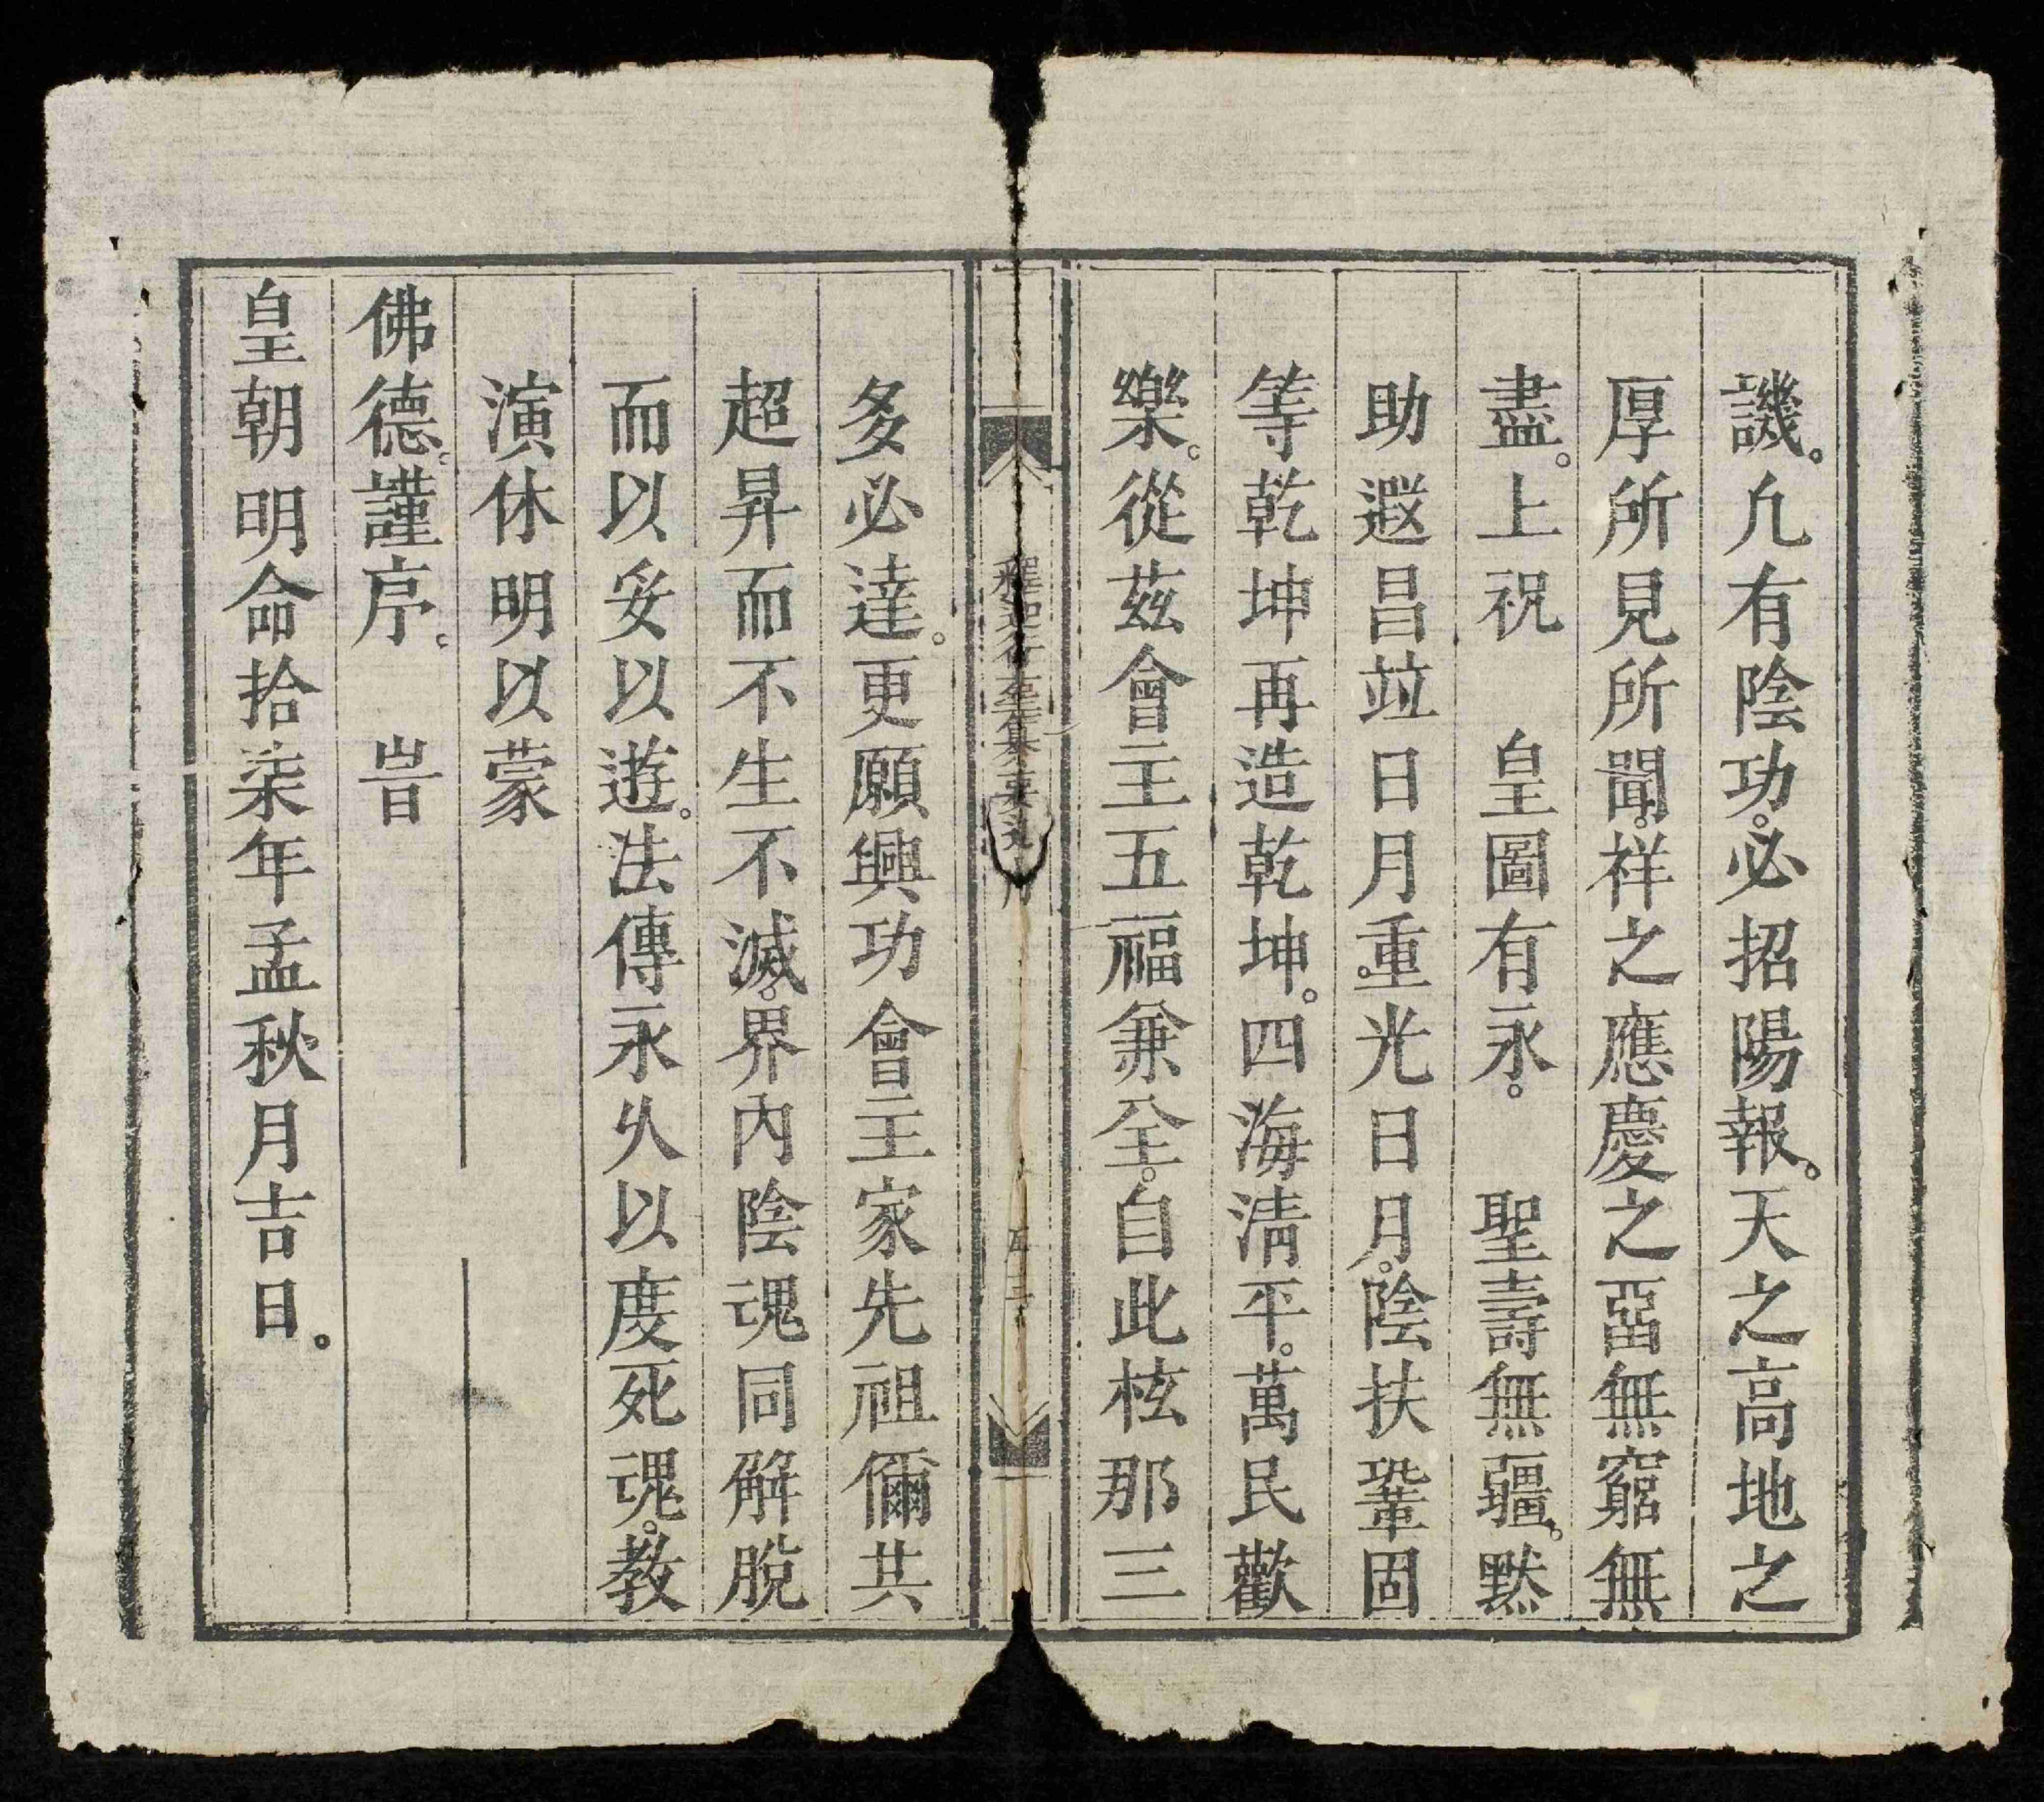 譏。凢有陰功。必招陽報。天之高地之
厚所見所聞。祥之應慶之畱無窮無
盡。上祝　皇圖有永。　聖壽無疆。黙
助遐昌竝日月重。光日月。陰扶鞏固
等乾坤再造乾坤。四海清平。萬民歡
樂。從茲會主五福兼全。自此檀那三
釋迦行
多必達。更願興功會主家先祖儞共
超昇而不生不滅。界內陰魂同解脫
而以妥以遊。法傳永久以度死魂。教
演休明以蒙
佛德。謹序。　旹
皇朝明命拾柒年孟秋月吉日。